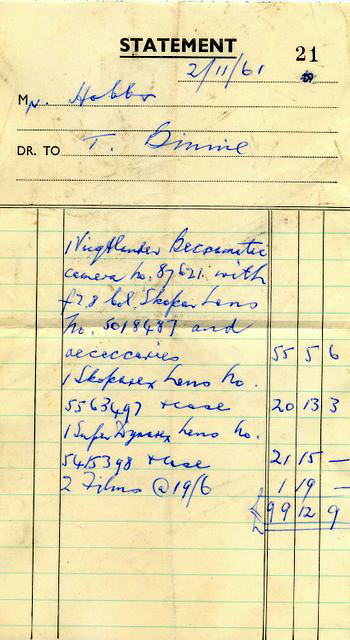 STATEMENT
21
2/11/61
Mr. Hobbs
DR. TO T. Binnie
1 Vingtlander Becsamatic
camera No. 87621 with
f2.8 Col. Skopar Lens
No. 5018487 and
accessories 55 5 6
1 Skoparex Lens No.
5563497 + case 20 13 3
1 Super Dynarex Lens No.
5415398 + case 21 15 —
2 Films @ 19/6 1 19 —
£ 99 12 9